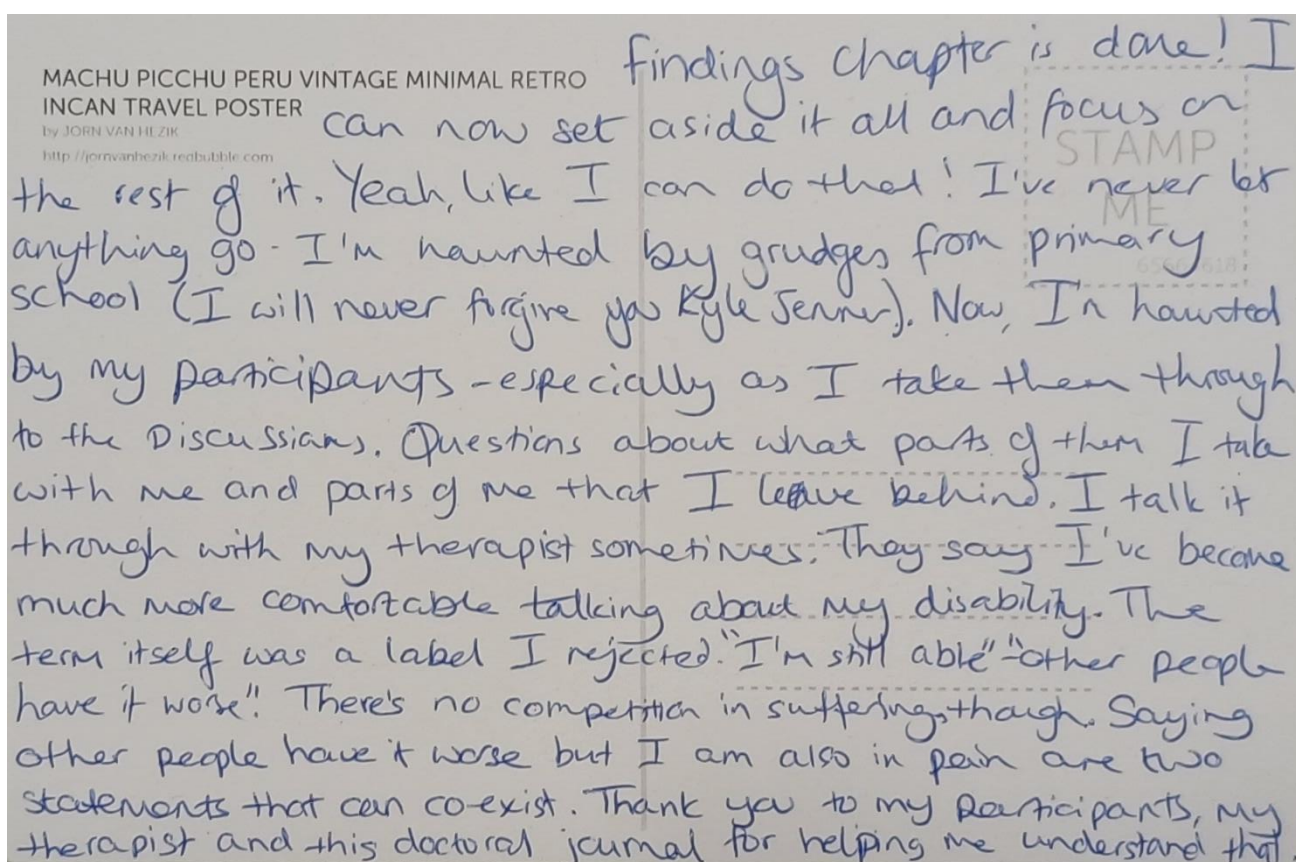 findings chapter is done! I
MACHU PICCHU PERU VINTAGE MINIMAL RETRO
INCAN TRAVEL POSTER
by JORN VAN HEZIK
http://jornvanhezik.redbubble.com
STAMP
ME
can now set aside it all and focus on
the rest of it. Yeah, like I can do that! I've never let
anything go - I'm haunted by grudges from primary
school (I will never forgive you Kyle Jenner). Now, I'm haunted
by my participants - especially as I take them through
to the Discussions. Questions about what parts of them I take
with me and parts of me that I leave behind. I talk it
through with my therapist sometimes. They say I've become
much more comfortable talking about my disability. The
term itself was a label I rejected. "I'm still able" "other people
have it worse". There's no competition in suffering, though. Saying
other people have it worse but I am also in pain are two
statements that can co-exist. Thank you to my participants, my
therapist and this doctoral journal for helping me understand that.